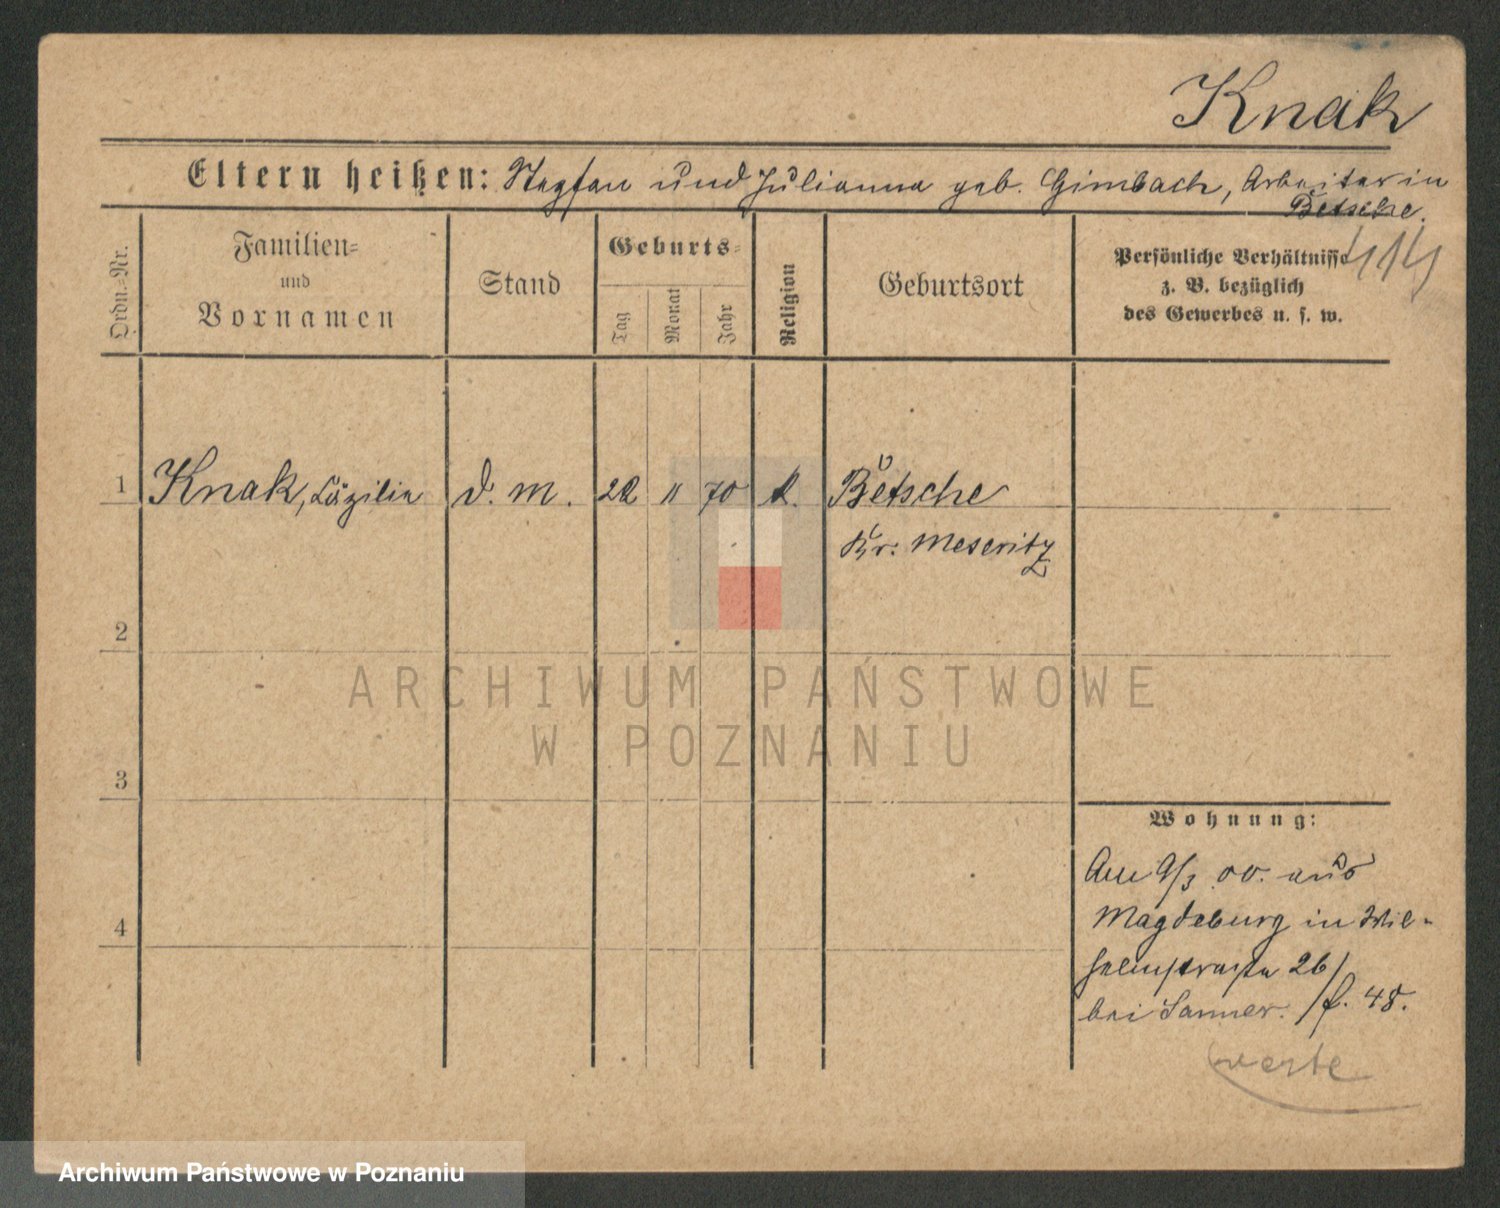 Knak
Eltern heißen: Stephan und Julianna geb. Gimbach, Arbeiter in
Betsche.
414
Ordn.-Nr.
Familien-
und
Vornamen
Stand
Geburts-
Tag
Monat
Jahr
Religion
Geburtsort
Persönliche Verhältnisse
z. B. bezüglich
des Gewerbes u. s. w.
1 Knak, Cäzilie d. m. 22 11 70 k. Betsche
Kr: Meseritz
2
3
4
Wohnung:
Am 9/3 00. aus
Magdeburg in Wil-
helmstraße 26/
bei Sanner. / f. 48.
verte
ARCHIWUM PAŃSTWOWE
W POZNANIU
Archiwum Państwowe w Poznaniu